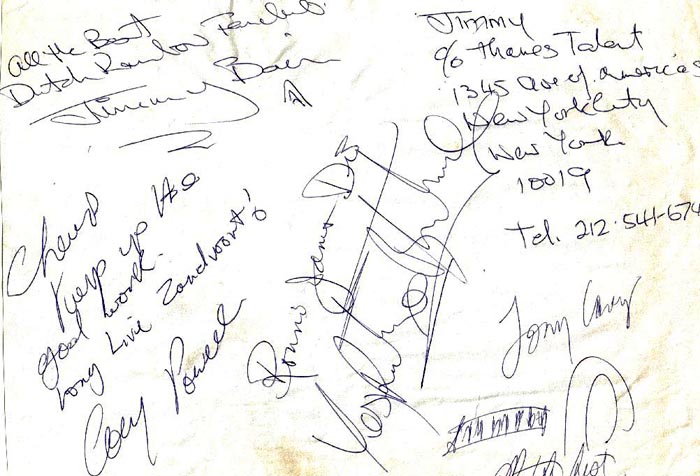 All the Best
Dutch Rainbow Fanclub
Jimmy Bain
Jimmy
c/o Thames Talent
1345 Ave of Americas
New York City
New York
10019
Tel. 212·541-674
Cheers
Keep up the
good work.
Long Live Zandvoort!
Cozy Powell
Ronnie James Dio
Tony Carey